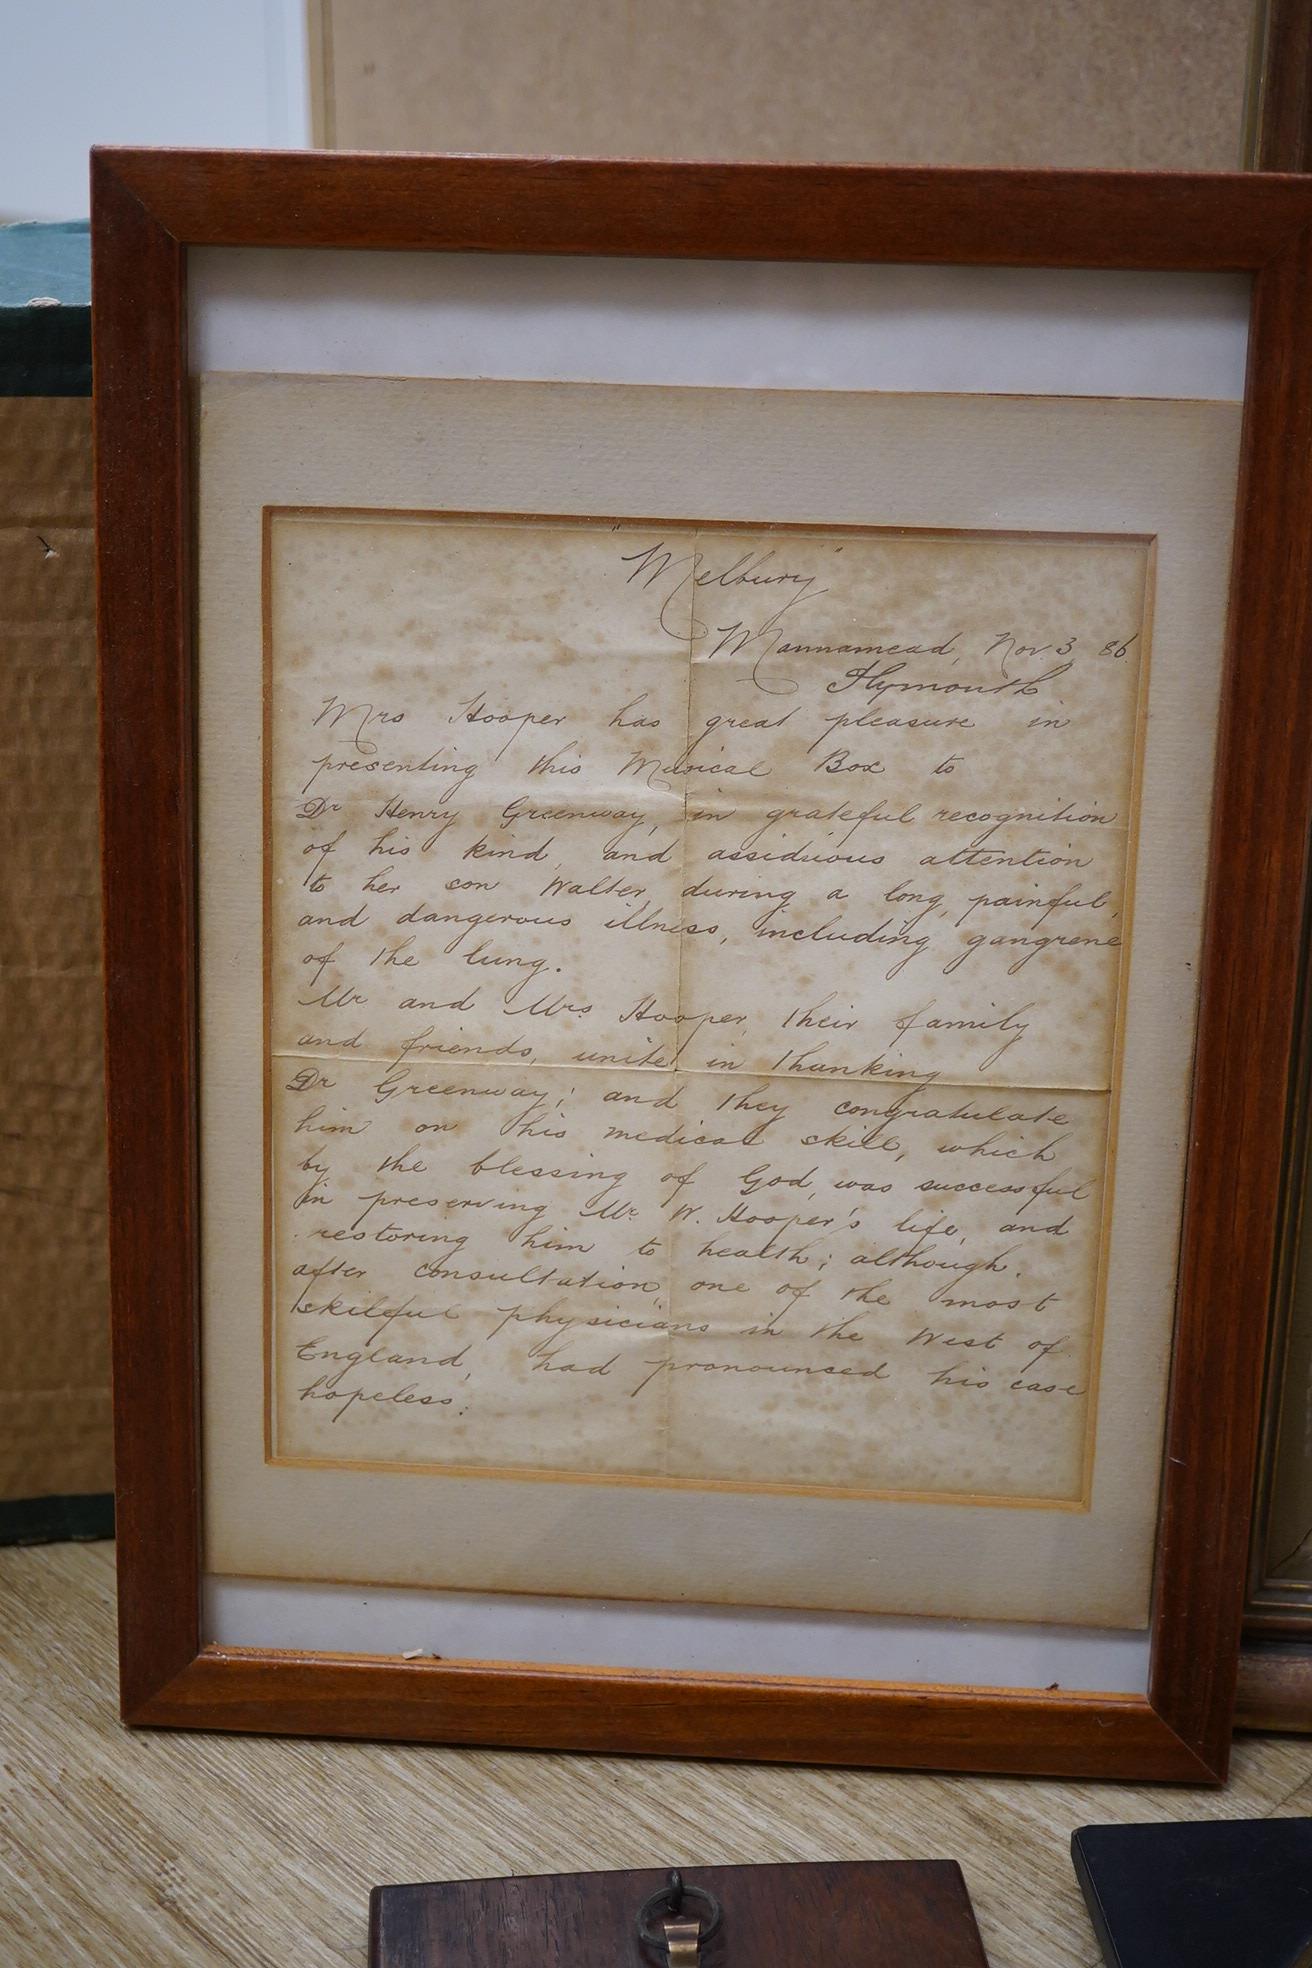 "Melbury"
Mannamead, Nov 3, 86.
Plymouth
Mrs Hooper has great pleasure in
presenting this Musical Box to
Dr Henry Greenway, in grateful recognition
of his kind, and assiduous attention
to her son Walter, during a long, painful,
and dangerous illness, including gangrene
of the lung.
Mr and Mrs Hooper, their family
and friends, unite in thanking
Dr Greenway; and they congratulate
him on his medical skill, which
by the blessing of God, was successful
in preserving Mr W. Hooper's life, and
restoring him to health; although,
after consultation, one of the most
skilful physicians in the West of
England, had pronounced his case
hopeless.